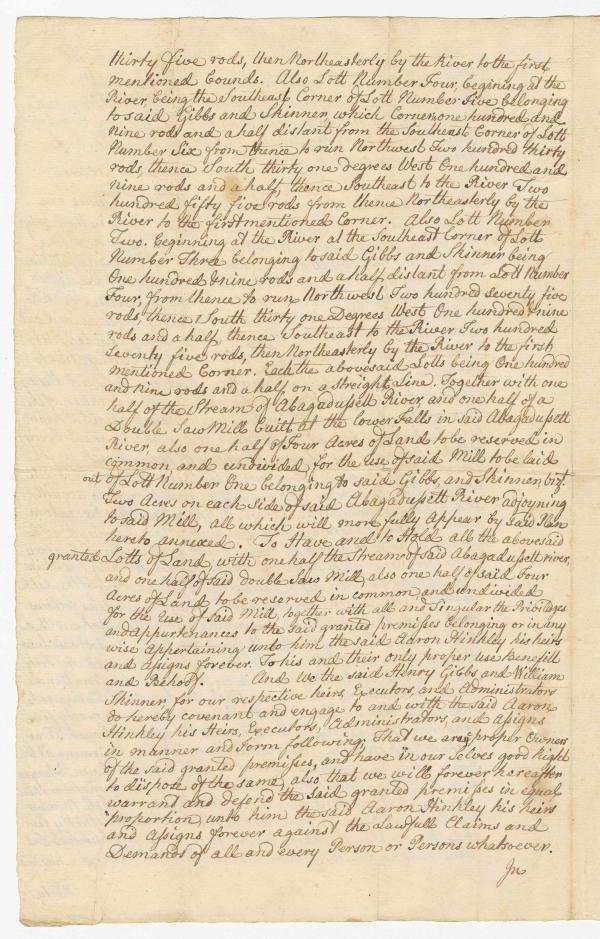 thirty five rods, then Northeasterly by the River to the first
mentioned Bounds. Also Lott Number Four, begining at the
River, being the Southeast Corner of Lott Number Five belonging
to said Gibbs and Skinner, which Corner one hundred and
nine rods and a half distant from the Southeast Corner of Lott
Number Six from thence to run Northwest Two hundred thirty
rods, thence South thirty one degrees West One hundred and
nine rods and a half, thence Southeast to the River Two
hundred fifty five rods from thence Northeasterly by the
River to the first mentioned Corner. Also Lott Number
Two. beginning at the River at the Southeast Corner of Lott
Number Three belonging to said Gibbs and Skinner being
One hundred & nine rods and a half distant from Lott Number
Four, from thence to run Northwest Two hundred Seventy five
rods, thence South thirty one Degrees West One hundred & nine
rods and a half, thence Southeast to the River Two hundred
Seventy five rods, then Northeasterly by the River to the first
mentioned Corner. Each the abovesaid Lotts being One hundred
and nine rods and a half on a streight Line. Together with one
half of the Stream of Abagadussett River, and one half of a
Double Saw Mill Built at the lower Falls in said Abagadussett
River, also one half of Four Acres of Land to be reserved in
common and undivided, for the use of said Mill to be laid
out of Lott Number One belonging to said Gibbs, and Skinner, vizt.
Two Acres on each Side of said Abagadussett River adjoyning
to said Mill, all which will more fully Appear by said Plan
hereto annexed. To Have and to Hold all the abovesaid
granted Lotts of Land, with one half the Stream of said Abagadussett river,
and one half of said double Saw Mill, also one half of said Four
Acres of Land, to be reserved in common and undivided
for the Use of Said Mill, together with all and Singular the Priviledges
and Appurtenances to the said granted premisses belonging or in any
wise Appertaining unto him the said Aaron Hinkley his heirs
and assigns forever. To his and their only proper use Benefitt
and Behoff. And We the said Henry Gibbs, and William
Skinner, for our respective heirs, Executors, and Administrators
do hereby covenant and engage to and with the said Aaron
Hinkley his Heirs, Executors, Administrators, and Assigns
in manner and Form following, That we are proper Owners
of the said granted premisses, and have in our Selves good Right
to dispose of the same, also that we will forever hereafter
warrant and defend the said granted premisses in equal
proportion, unto him the said Aaron Hinkley his heirs
and Assigns forever against the Lawfull Claims and
Demands of all and every Person or Persons whatsoever.
In